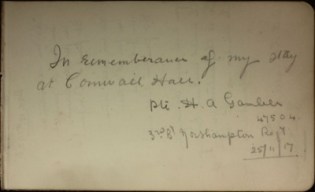 In rememberance of my stay
at Cornwall Hall.
Pte. H. A
47504
3rd Northampton Regt.
25/11/17